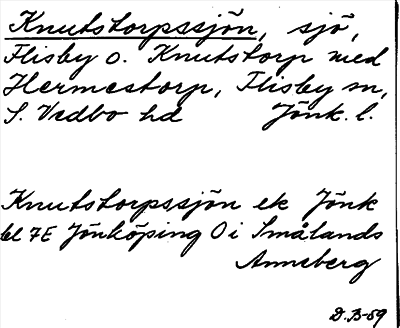 Knutstorpssjön, sjö,
Flisby o. Knutstorp med
Hermestorp, Flisby sn,
S. Vedbo hd Jönk. l.
Knutstorpssjön ek Jönk
bl 7E Jönköping O i Smålands
Anneberg
D.B-59